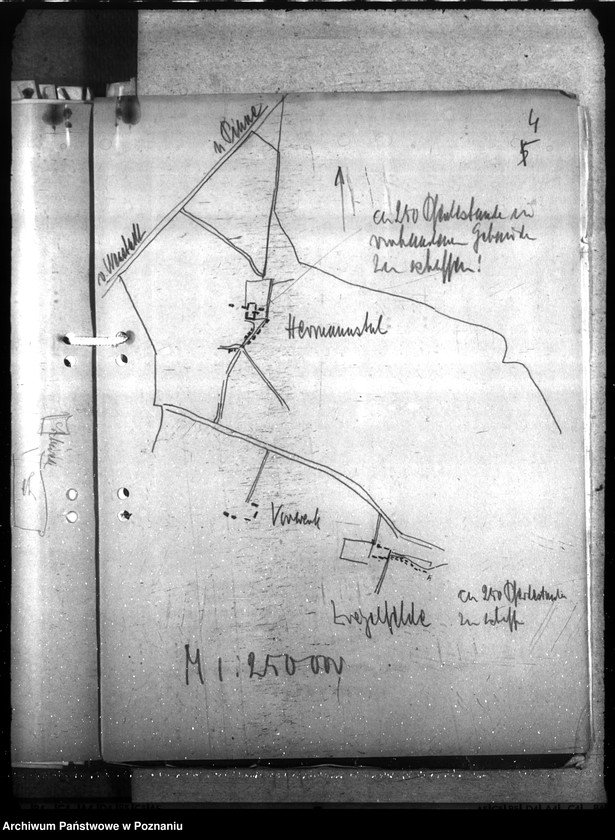 4
5
n. Pinne
ca 250 Pferdestände in
vorhandenen Gebäude
zu schaffen!
Hermannstal
Vorwerk
ca 250 Pferdestände
zu schaffen
M 1:250000
Archiwum Państwowe w Poznaniu